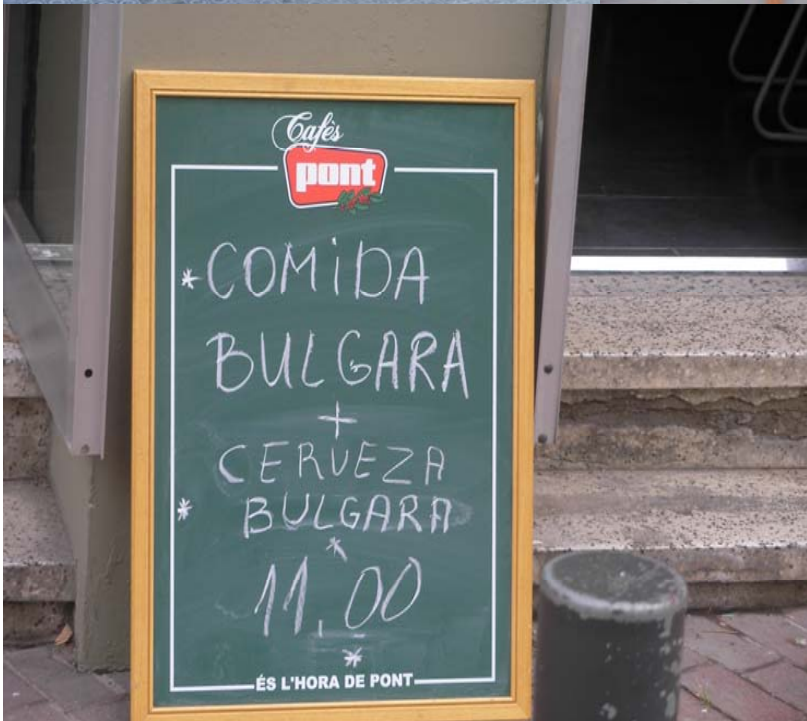 Cafès
pont
*COMiDA
BULGARA
+
CERVEZA
* BULGARA
*
11,00
*
ÉS L'HORA DE PONT